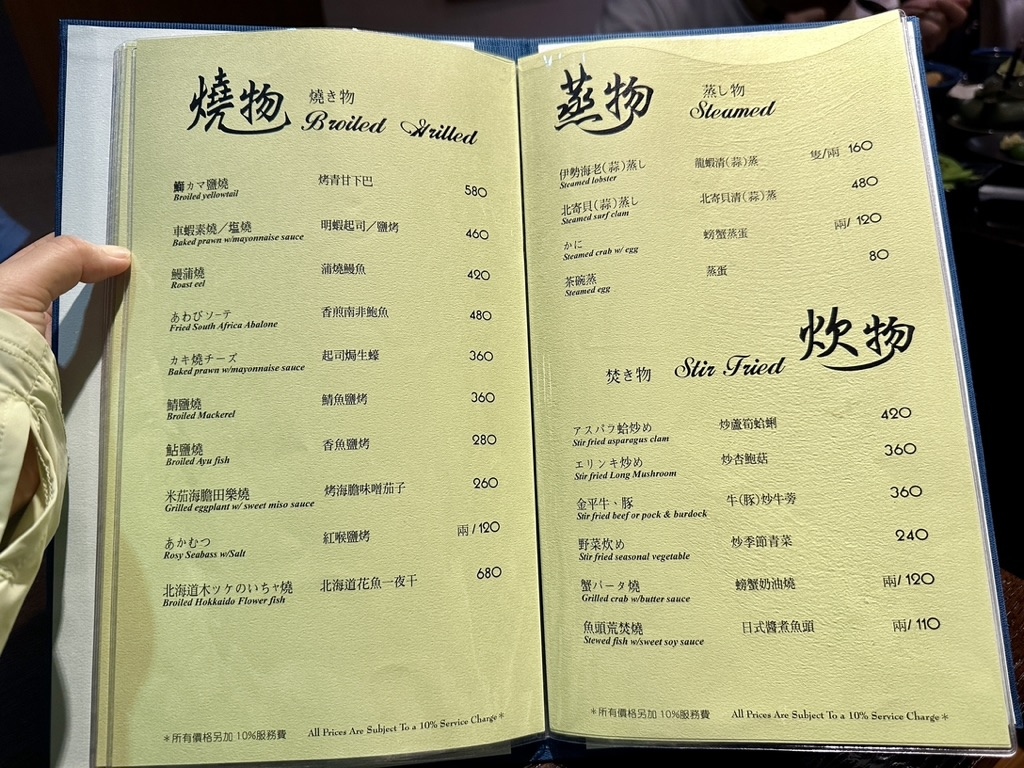 燒物 燒き物
Broiled Grilled
鰤カマ鹽燒 烤青甘下巴 580
Broiled yellowtail
車蝦素燒／塩燒 明蝦起司／鹽烤 460
Baked prawn w/mayonnaise sauce
鰻蒲燒 蒲燒鰻魚 420
Roast eel
あわびソーテ 香煎南非鮑魚 480
Fried South Africa Abalone
カキ燒チーズ 起司焗生蠔 360
Baked prawn w/mayonnaise sauce
鯖鹽燒 鯖魚鹽烤 360
Broiled Mackerel
鮎鹽燒 香魚鹽烤 280
Broiled Ayu fish
米茄海膽田樂燒 烤海膽味噌茄子 260
Grilled eggplant w/ sweet miso sauce
あかむつ 紅喉鹽烤 兩/120
Rosy Seabass w/Salt
北海道木ッケのいちャ燒 北海道花魚一夜干 680
Broiled Hokkaido Flower fish
＊所有價格另加 10%服務費 All Prices Are Subject To a 10% Service Charge＊
蒸物 蒸し物
Steamed
伊勢海老(蒜)蒸し 龍蝦清(蒜)蒸 隻/兩 160
Steamed lobster
北寄貝(蒜)蒸し 北寄貝清(蒜)蒸 480
Steamed surf clam
かに 螃蟹蒸蛋 兩/ 120
Steamed crab w/ egg
茶碗蒸 蒸蛋 80
Steamed egg
焚き物 Stir Fried 炊物
アスパラ蛤炒め 炒蘆筍蛤蜊 420
Stir fried asparagus clam
エリンキ炒め 炒杏鮑菇 360
Stir fried Long Mushroom
金平牛、豚 牛(豚)炒牛蒡 360
Stir fried beef or pock & burdock
野菜炊め 炒季節青菜 240
Stir fried seasonal vegetable
蟹バータ燒 螃蟹奶油燒 兩/120
Grilled crab w/butter sauce
魚頭荒焚燒 日式醬煮魚頭 兩/ 110
Stewed fish w/sweet soy sauce
＊所有價格另加 10%服務費 All Prices Are Subject To a 10% Service Charge＊